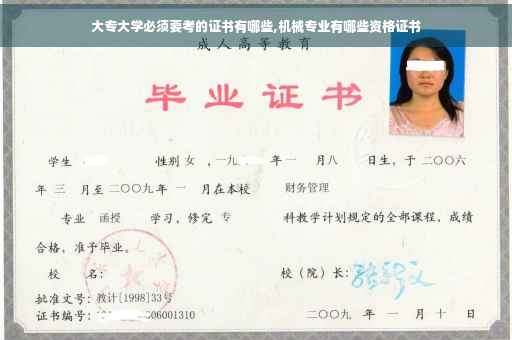 大专大学必须要考的证书有哪些,机械专业有哪些资格证书
成人高等教育
毕业证书
学生 性别 女 ,一九 年 一 月 八 日生,于 二〇〇六
年 三 月至 二〇〇九 年 一 月在本校 财务管理
专业 函授 学习,修完 专 科教学计划规定的全部课程,成绩
合格,准予毕业。
校 名: 校(院)长:
批准文号:教计[1998]33号
证书编号: 06001310 二〇〇九 年 一 月 十 日